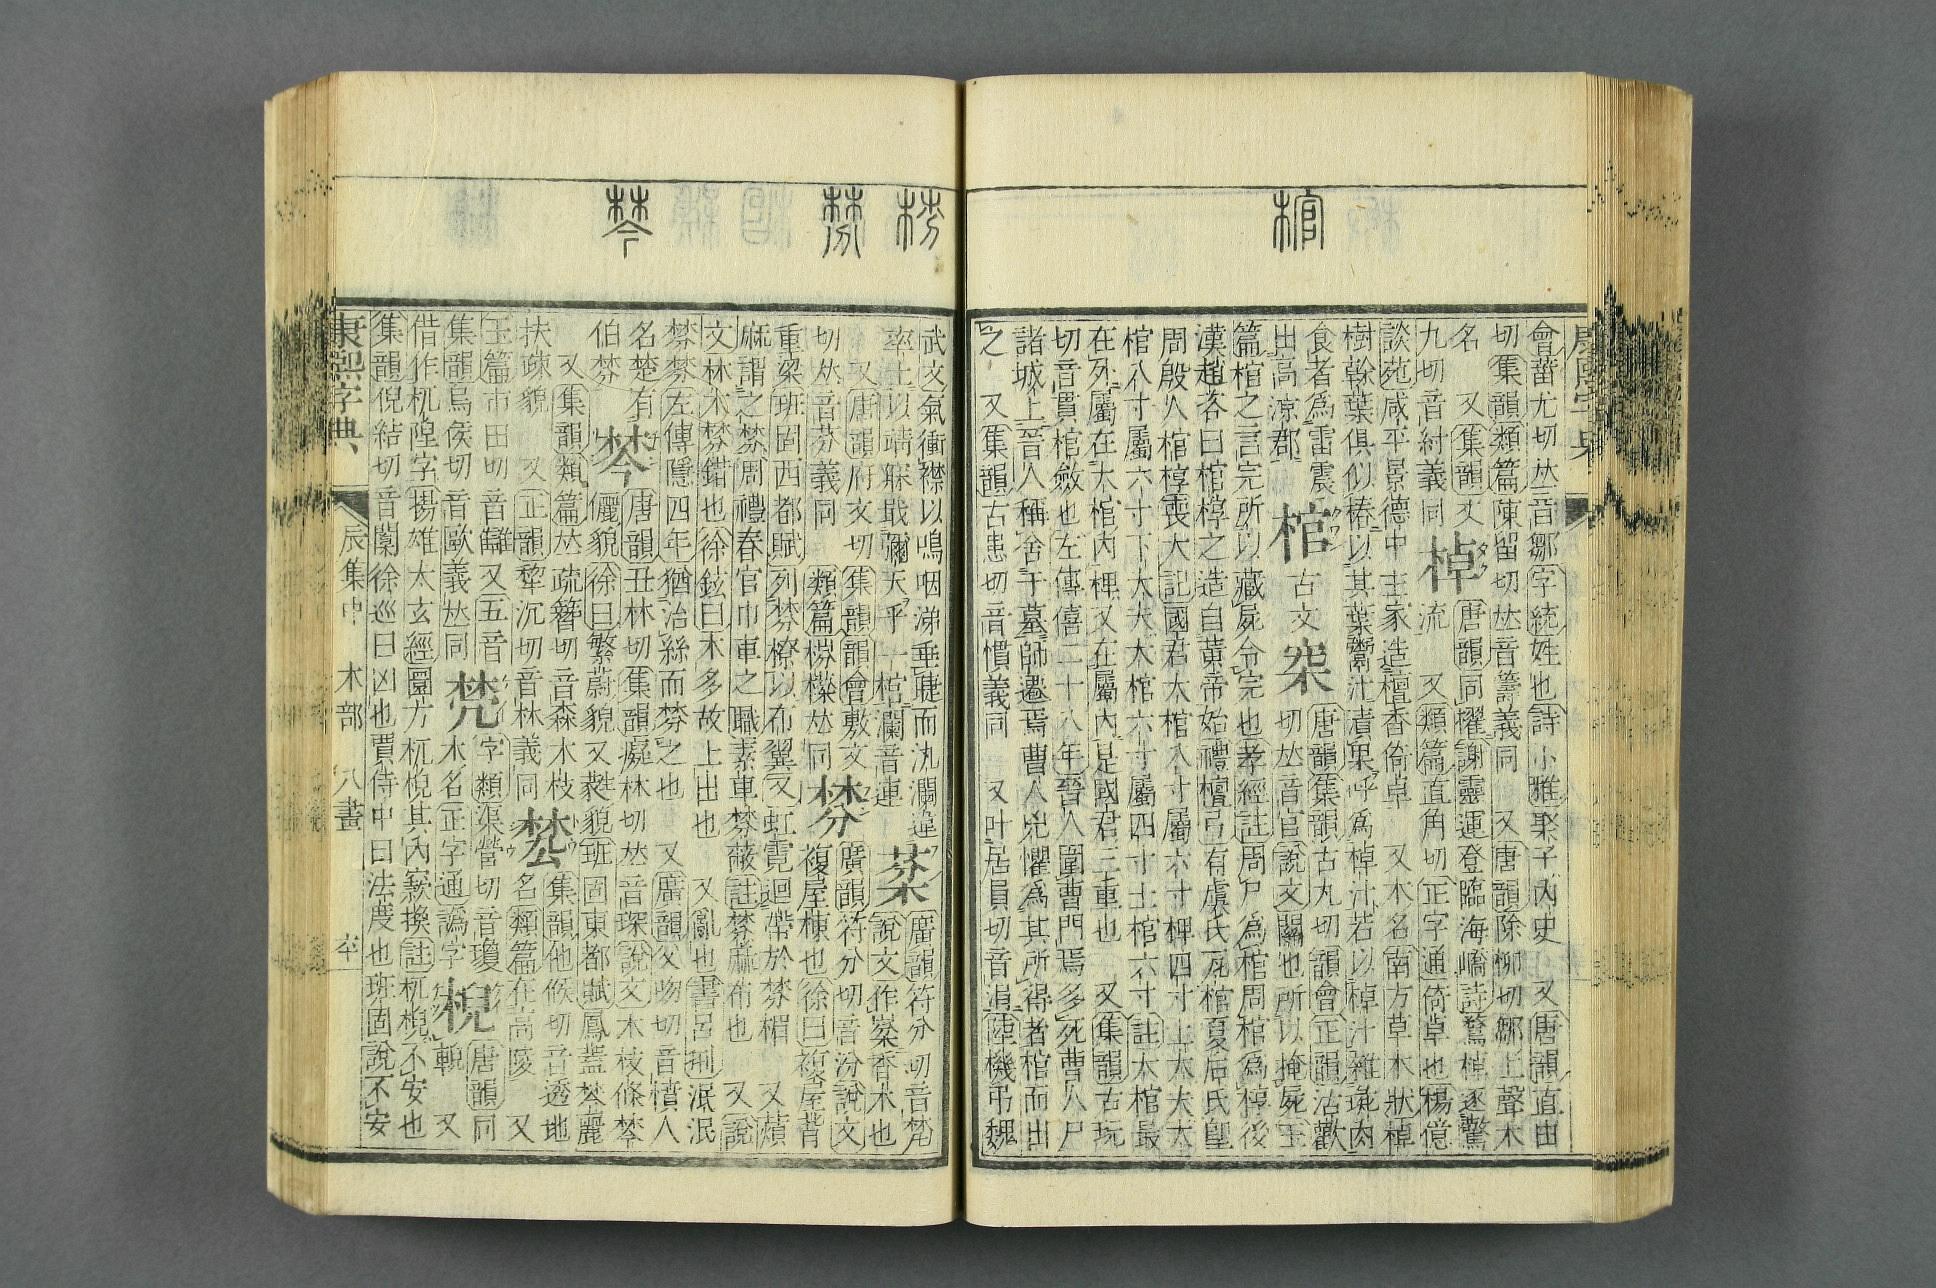 棺
會蕾尤切𠀤音鄒字統姓也詩小雅聚子內史 又唐韻直由
切集韻類篇陳留切𠀤音籌義同 又唐韻除柳切鄒上聲木
名 又集韻丈
九切音紂義同
棹
唐韻同櫂謝靈運登臨海嶠詩鶩棹逐驚
流 又類篇直角切正字通倚卓也楊億
談苑咸平景德中主家造檀香倚卓 又木名南方草木狀棹
樹幹葉俱似椿以其葉鬻汁漬果呼爲棹汁若以棹汁雜彘肉
食者爲雷震
出高涼郡
棺
古文
𣏓
唐韻集韻古丸切韻會正韻沽歡
切𠀤音官說文關也所以掩屍玉
篇棺之言完所以藏屍令完也孝經註周尸爲棺周棺爲椁後
漢趙咨曰棺椁之造自黃帝始禮檀弓有虞氏瓦棺夏后氏堲
周殷人棺椁喪大記國君大棺八寸屬六寸椑四寸上大夫大
棺八寸屬六寸下大夫大棺六寸屬四寸士棺六寸註大棺最
在外屬在大棺內椑又在屬內是國君三重也 又集韻古玩
切音貫棺斂也左傳僖二十八年晉人圍曹門焉多死曹人尸
諸城上晉人稱舍于墓師遷焉曹人兇懼爲其所得者棺而出
之 又集韻古患切音慣義同 又叶居員切音涓陸機弔魏
棼
𣞣
梣
武文氣衝襟以嗚咽涕垂睫而汍瀾違
率土以靖寐戢彌天乎一棺瀾音連
棻
廣韻符分切音棼
說文作𣡕香木也
又唐韻府文切集韻韻會敷文
切𠀤音芬義同 類篇棼橖𠀤同
棼
廣韻符分切音汾說文
複屋棟也徐曰複屋皆
重梁班固西都賦列棼橑以布翼又虹霓迴帶於棼楣 又蕡
麻謂之棼周禮春官巾車之職素車棼蔽註棼麻布也 又說
文林木棼錯也徐鉉曰木多故上出也 又亂也書呂𠛬泯泯
棼棼左傳隱四年猶治絲而棼之也 又廣韻父吻切音憤人
名楚有
伯棼
棽
唐韻丑林切集韻癡林切𠀤音琛說文木枝條棽
儷貌徐曰繁蔚貌又㲯貌班固東都賦鳳蓋棽麗
又集韻類篇𠀤疏簪切音森木枝
扶疎貌 又正韻犂沉切音林義同
棯
集韻他候切音透地
名類篇在高陵 又
玉篇市由切音讎又五音
集韻烏侯切音歐義𠀤同
㭺
字類渠營切音瓊
木名正字通譌字
棿
唐韻同
輗 又
借作杌隉字揚雄太玄經圜方杌棿其內窾換註杌棿不安也
集韻倪結切音闑徐巡曰凶也賈侍中曰法度也班固說不安
康熙字典 辰集中 木部 八畫 卒